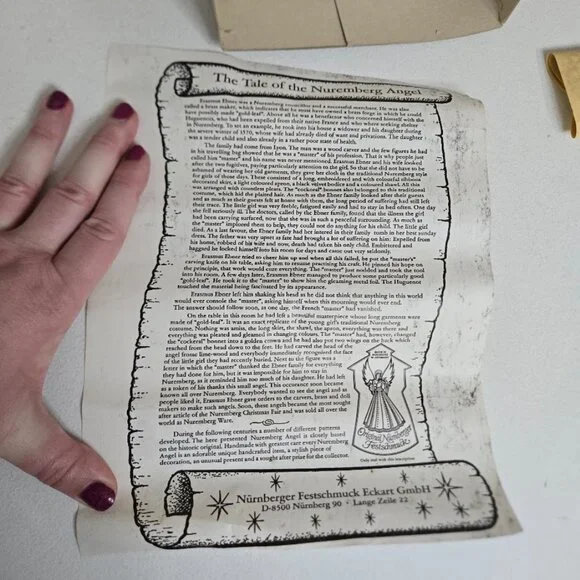 The Tale of the Nuremberg Angel
Erasmus Ebner was a Nuremberg councillor and a successful merchant. He was also
called a brass maker, which indicates that he must have owned a brass forge in which he could
have possibly made "gold-leaf". Above all he was a benefactor who concerned himself with the
Huguenots, who had been expelled from their native France and who where seeking shelter
in Nuremberg. To set an example, he took into his house a widower and his daughter during
the severe winter of 1570, whose wife had already died of want and privations. The daughter
was a tender child and also already in a rather poor state of health.
The family had come from Lyon. The man was a wood carver and the few figures he had
in his travelling bag showed that he was a "master" of his profession. That is why people just
called him "master" and his name was never mentioned. Erasmus Ebner and his wife looked
after the two fugitives, paying particularly attention to the girl. So that she did not have to be
ashamed of wearing her old garments, they gave her cloth in the traditional Nuremberg style
for girls of those days. These consisted of a long, embroidered and with colourful ribbons
decorated skirt, a light coloured apron, a black velvet bodice and a coloured shawl. All this
was arranged with countless pleats. The "cockeral" bonnet also belonged to this traditional
costume, which had the plaited hair. As much as the Ebner family looked after their guests
and as much as their guests felt at home with them, the long period of suffering had still left
their trace. The little girl was very feeble, fatigued easily and had to stay in bed often. One day
she fell seriously ill. The doctors, called by the Ebner family, found that the illness the girl
had been carrying surfaced, now that she was in such a peaceful surrounding. As much as
the "master" implored them to help, they could not do anything for his child. The little girl
died. As a last favour, the Ebner family had her interred in their family tomb in her best sunday
dress. The father was very upset as fate had brought a lot of suffering on him: Expelled from
his home, robbed of his wife and now, death had taken his only child. Embittered and
haggard he locked himself into his room for days and came out very seldomly.
Erasmus Ebner tried to cheer him up and when all this failed, he put the "master's"
carving knife on his table, asking him to resume practising his craft. He pinned his hope on
the principle, that work would cure everything. The "master" just nodded and took the tool
into his room. A few days later, Erasmus Ebner managed to produce some particularly good
"gold-leaf". He took it to the "master" to show him the gleaming metal foil. The Huguenot
touched the material being fascinated by its appearance.
Erasmus Ebner left him shaking his head as he did not think that anything in this world
would ever console the "master", asking himself when this mourning would ever end.
The answer should follow soon, as one day, the French "master" had vanished.
On the table in this room he had left a beautiful masterpiece whose long garments were
made of "gold-leaf". It was an exact replicate of the young girl's traditional Nuremberg
costume. Nothing was amiss, the long skirt, the shawl, the apron, everything was there and
everything was pleated and gleamed in changing colours. The "master" had, however, changed
the "cockeral" bonnet into a golden crown and he had also put two wings on the back which
reached from the head down to the feet. He had carved the head of the
angel frome lime-wood and everybody immediately recognised the face
of the little girl they had recently buried. Next to the figure was a
letter in which the "master" thanked the Ebner family for everything
they had done for him, but it was impossible for him to stay in
Nuremberg, as it reminded him too much of his daughter. He had left
as a token of his thanks this small angel. This occurance soon became
known all over Nuremberg. Everybody wanted to see the angel and as
people liked it, Erasmus Ebner gave orders to the carvers, brass and doll
makers to make such angels. Soon, these angels became the most sought
after article of the Nuremberg Christmas Fair and was sold all over the
world as Nuremberg Ware.
During the following centuries a number of different patterns
developed. The here presented Nuremberg Angel is closely based
on the historic original. Handmade with greatest care every Nuremberg
Angel is an adorable unique handcrafted item, a stylish piece of
decoration, an unusual present and a sought after prize for the collector.
Original Nürnberger
Festschmuck
Only real with this inscription
Nürnberger Festschmuck Eckart GmbH
D-8500 Nürnberg 90 · Lange Zeile 22